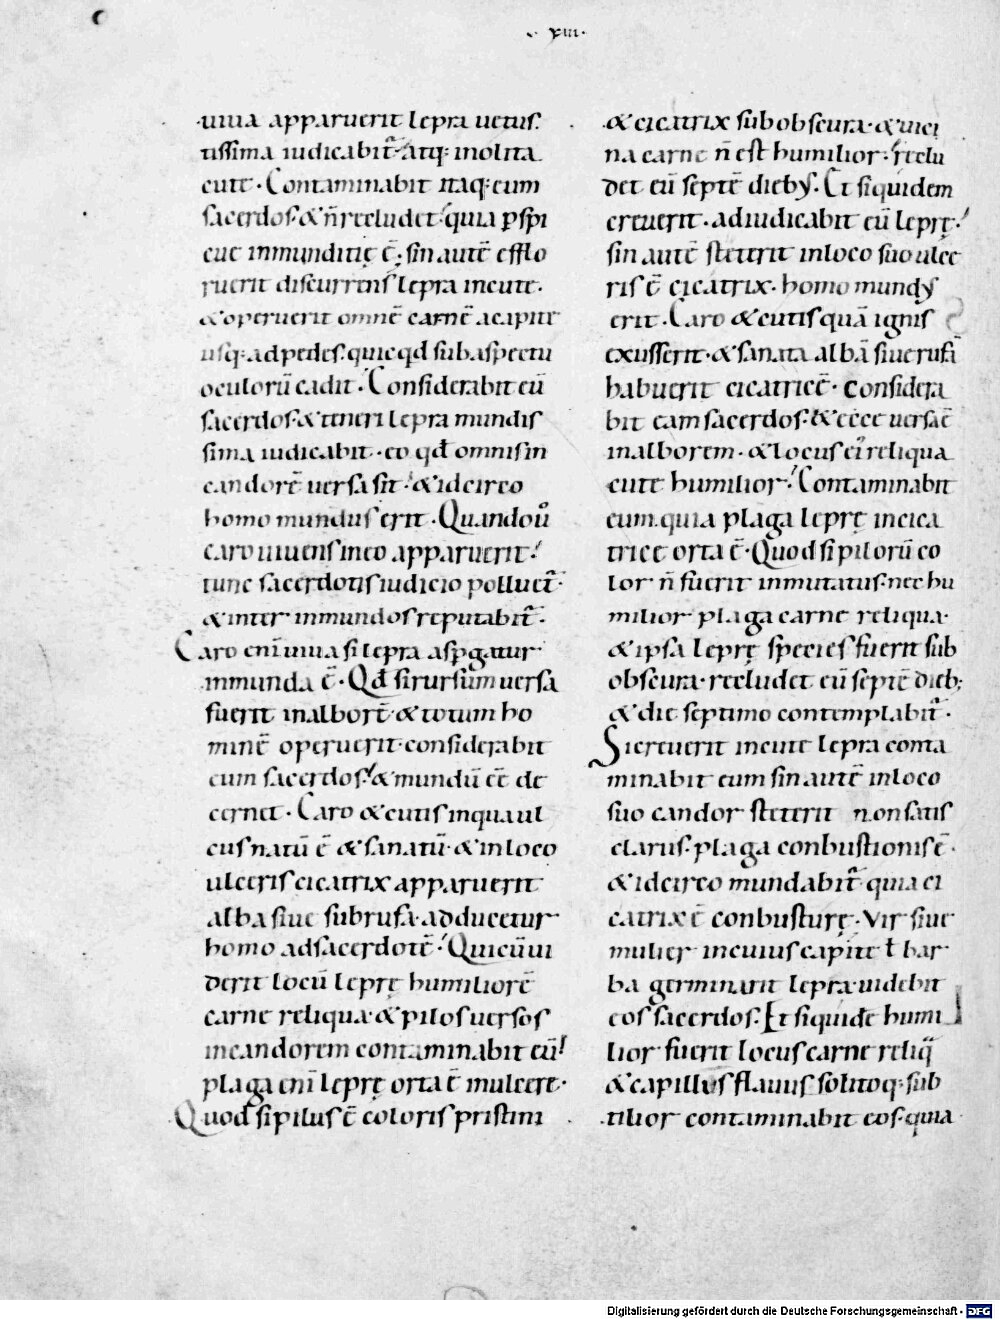 · xiii·
uiua apparuerit lepra uetus
tissima iudicabit᷑· atq; inolita
cute · Contaminabit itaq; eum
sacerdos· & n̄ recludet· quia ꝑspi
cue inmunditię ē· sin autē efflo
ruerit discurrens lepra incute·
& operuerit omnē carnē acapite
usq; adpedes· quicqd̄ subaspectu
oculorū cadit · Considerabit eū
sacerdos· & teneri lepra mundis
sima iudicabit · eo qd̄ omnis in
candorē uersa sit· & idcirco
homo mundus erit · Quando ū
caro uiuens in eo apparuerit·
tunc sacerdotis iudicio polluet᷑·
& inter inmundos reputabit᷑·
Caro enī uiua si lepra aspgatur
inmunda ē · Qd̄ si rursum uersa
fuerit in alborē· & totum ho
minē operuerit· considerabit
eum sacerdos· & mundū eē de
cernet · Caro & cutis in qua ul
cus natū ē & sanatū· & in loco
ulceris cicatrix apparuerit
alba siue subrufa· adducetur
homo ad sacerdotē · Qui cū ui
derit locū leprę humiliorē
carne reliqua· & pilos uersos
in candorem contaminabit eū·
plaga enī leprę orta ē in ulcere·
Quod si pilus ē coloris pristini
& cicatrix subobscura· & uici
na carne n̄ est humilior· reclu
det eū septē dieby· Et siquidem
creuerit · adiudicabit eū leprę·
sin autē steterit in loco suo ulce
ris ē cicatrix · homo mundy
erit · Caro & cutis quā ignis
exusserit· & sanata albā siue rufā
habuerit cicatricē · considera
bit eam sacerdos· & ecce uersa ē
in alborem · & locus ei᷒ reliqua
cute humilior· Contaminabit
eum· quia plaga leprę in cica
trice orta ē · Quod si pilorū co
lor n̄ fuerit inmutatus· nec hu
milior plaga carne reliqua·
& ipsa leprę species fuerit sub
obscura· recludet eū septē dieb;
& die septimo contemplabit᷑·
Si creuerit in cute lepra conta
minabit eum sin autē in loco
suo candor steterit non satis
clarus· plaga conbustionis ē·
& idcirco mundabit᷑ quia ci
catrix ē conbusturę · Vir siue
mulier in cuius capite ł bar
ba germinarit lepra· uidebit
eos sacerdos· Et siquidē humi
lior fuerit locus carne reliq̄
& capillus flauus solitoq; sub
tilior contaminabit eos· quia
Digitalisierung gefördert durch die Deutsche Forschungsgemeinschaft - DFG